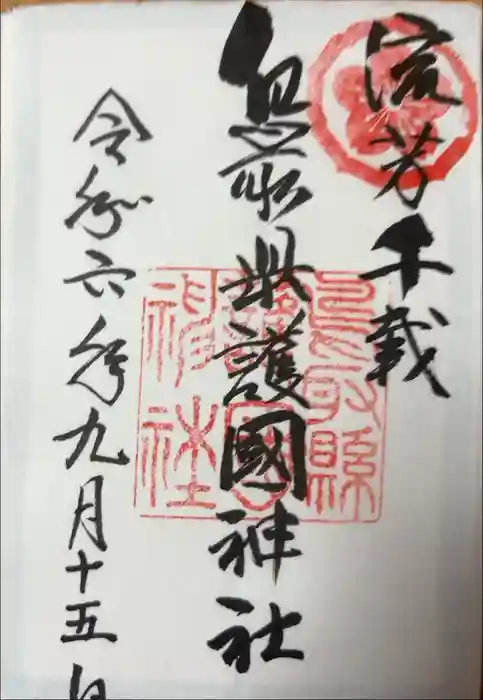 流芳千載
鳥取県護國神社
令和六年九月十五日
鳥取縣護國神社